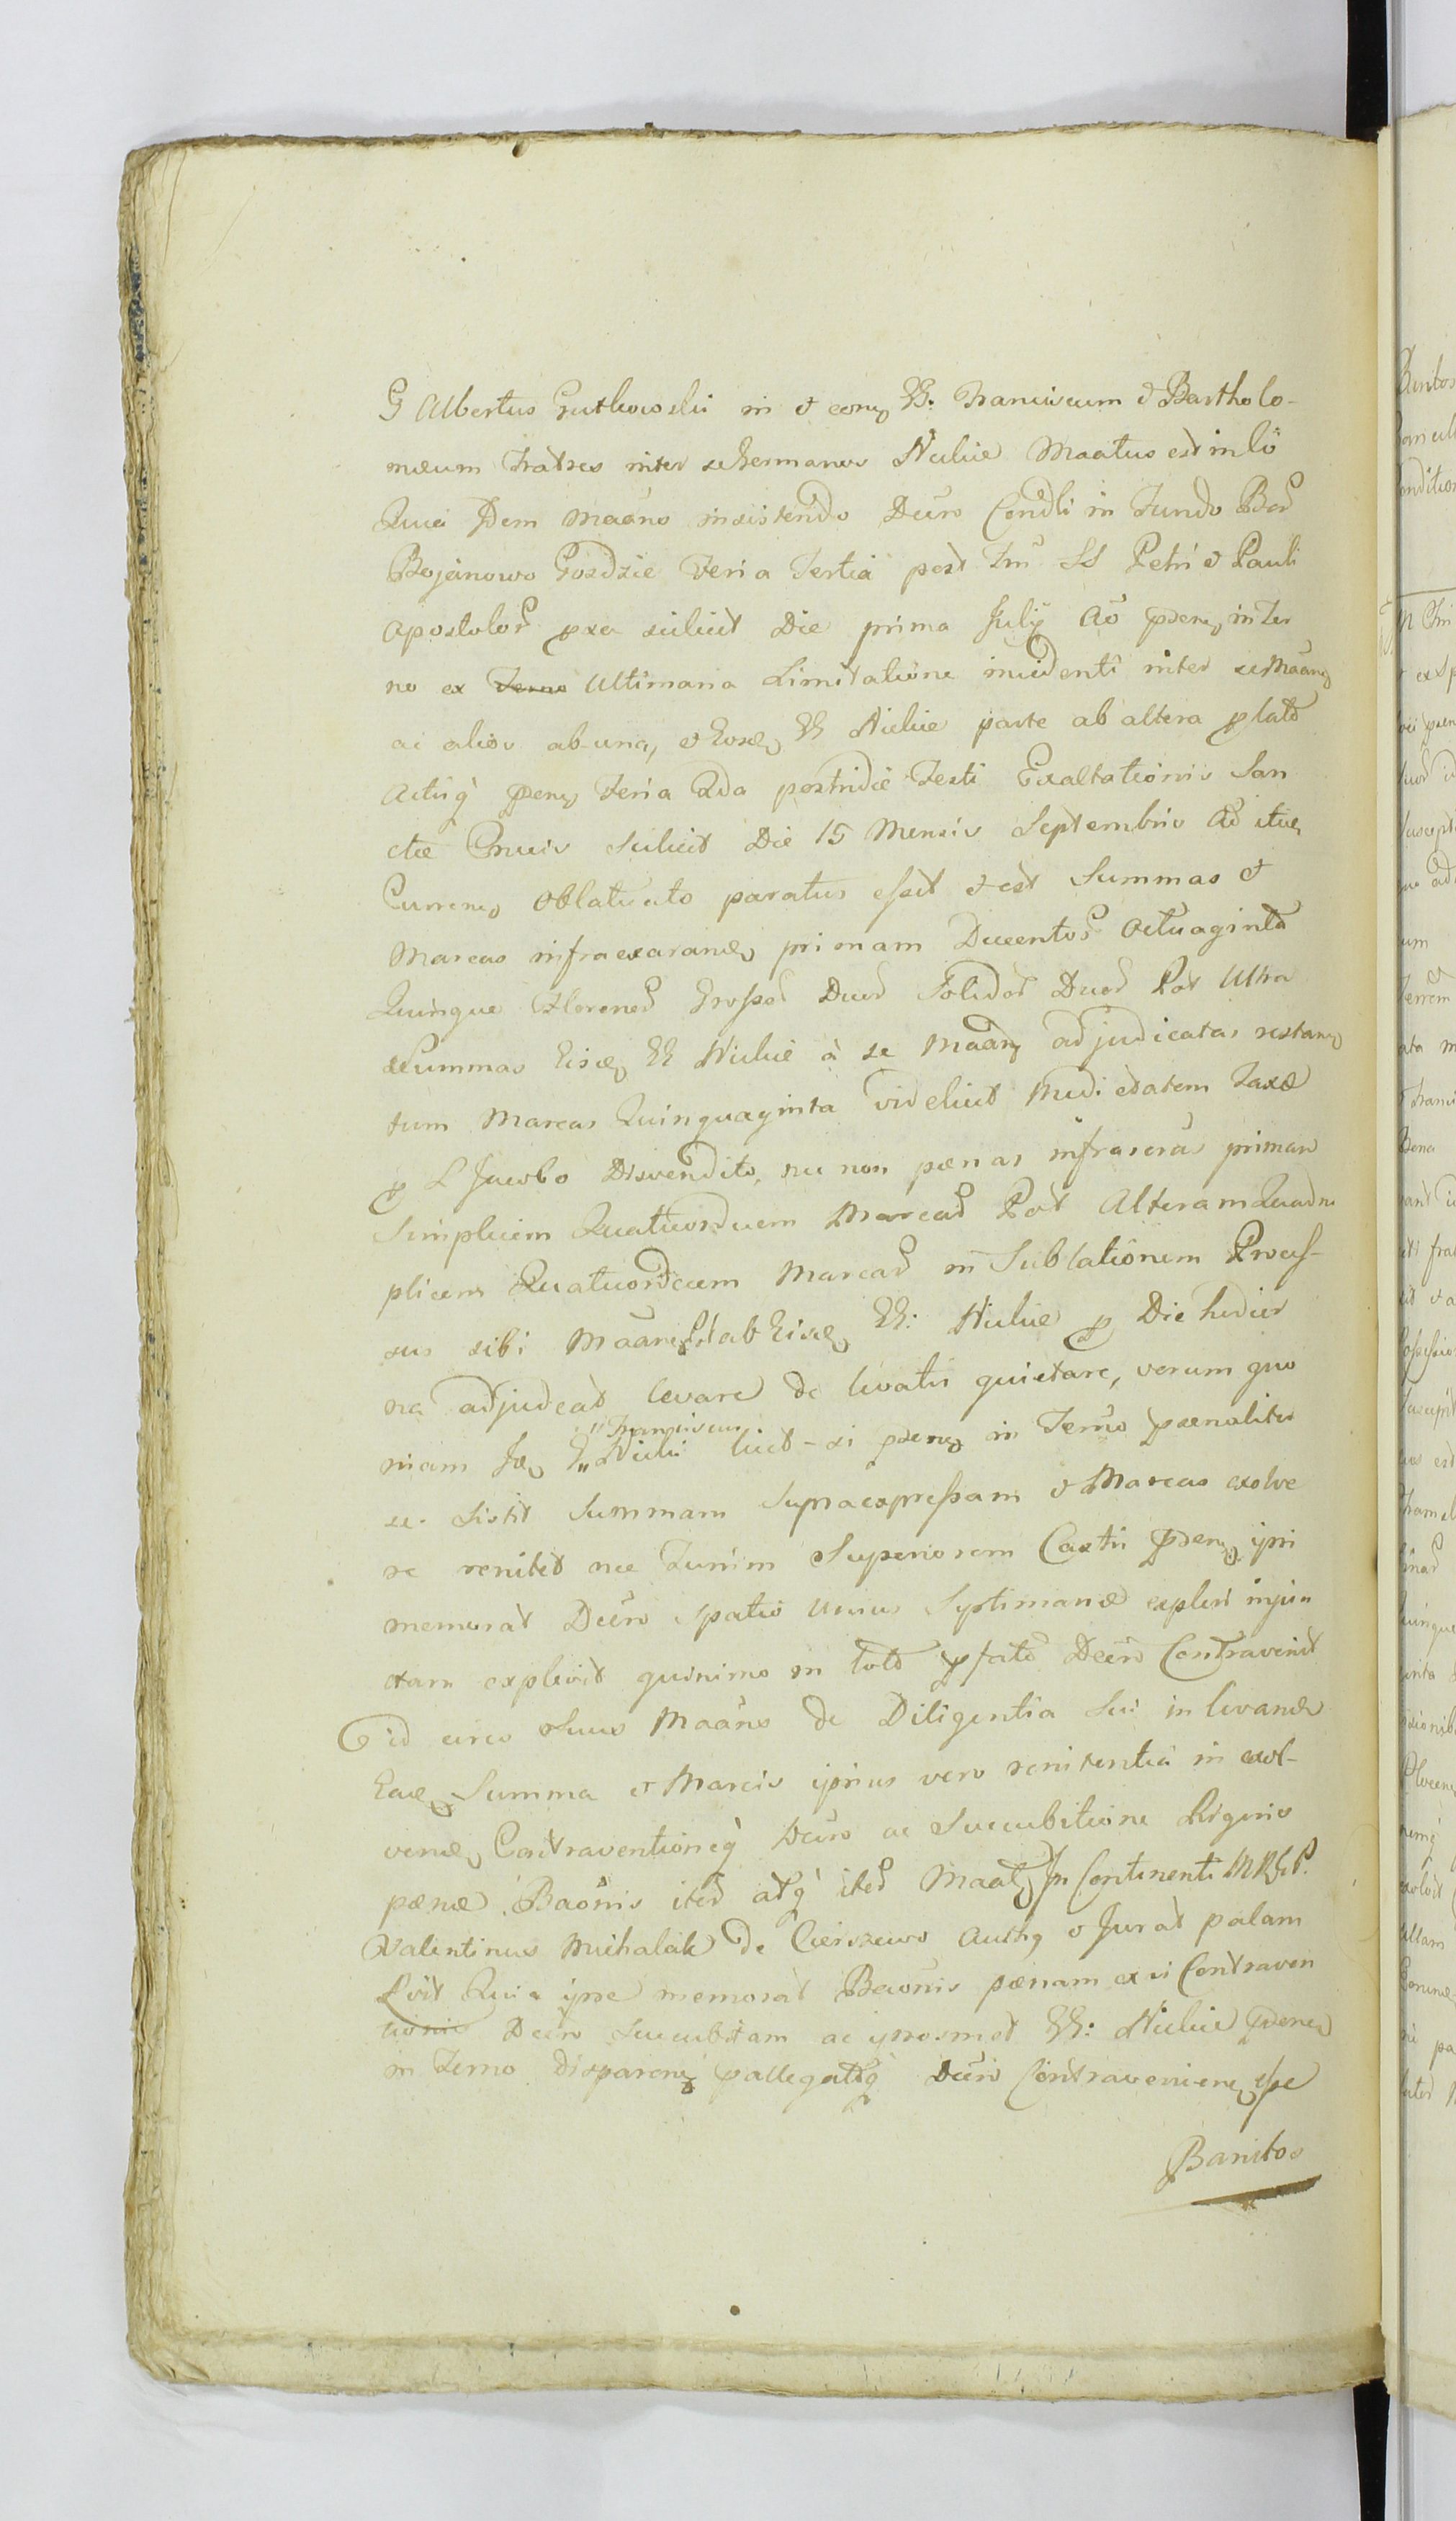 G Albertus Gutkowski in & conq GG. Franciscum & Bartholo-
mæum Fratres inter se Germanos Nickie Maatus est in lö
Quia Idem Maans insistendo Decro Condli in Fundo Bod
Bojanowo Gozdzie Feria Tertia post Fm SS Petri & Pauli
Apostolor pxa scilicet Die prima July Ao pden in Ter
no ex Ultimaria Limitatione incidenti inter se Maan
ac alios ab una, & Eosd GG Nickie parte ab altera plato
Actuq pden Feria 2da postridie Festi Exaltationis San
ctæ Crucis scilicet Die 15 Mensis Septembris Ao
Curren Oblatuato paratus essit & est Summas &
Marcas infraexarand primam Ducentor Octuaginta
Quinque Florenor Grossor Duor Solidor Duor Pol Ultra
Summas Eisd GG Nickie à se Maan adjudicatas restan
tum Marcas Quinquaginta videlicet Medietatem Taxæ
p L Jacobo Disvendito, nec non pænas infrascras primam
Simplicem Quatuordecem Marcar Pol Alteram Quadru
plicem Quatuordecem Marcar in Sublationem Process-
sus sibi Maan ab Eisd GG: Nickie p Die hodier
na adjudcat levare de levatis quietare, verum quo
niam Id G " Franciscus Nicki licet-si pden in Terno pænaliter
se sistit Summam Supraexpressam & Marcas exolve
re renitet nec Turrim Superiorem Castri pden ipsi
memorat Decro spatio unius Septimanæ expleri injun
ctam explevit quinimo in toto pfato Decro Contravenit
id circo Suus Maans de Diligentia Sui in levand
Ead Summa & Marcis ipsius vero renitentia in exol-
vend Contraventioneq Decro ac Succubitione
pænæ Baonis ited atq ited Maat In Continenti MRGP.
Valentinus Michalak de Cierszewo Auth & Jurat palam
Rvit Quia ipse memorat Baonis pænam ex vi Contraven
tionis Decro Succubitam ac ipsosmet GG: Nickie pden
in Terno disparen pallegatoq Decro Contravenien esse
Banitos